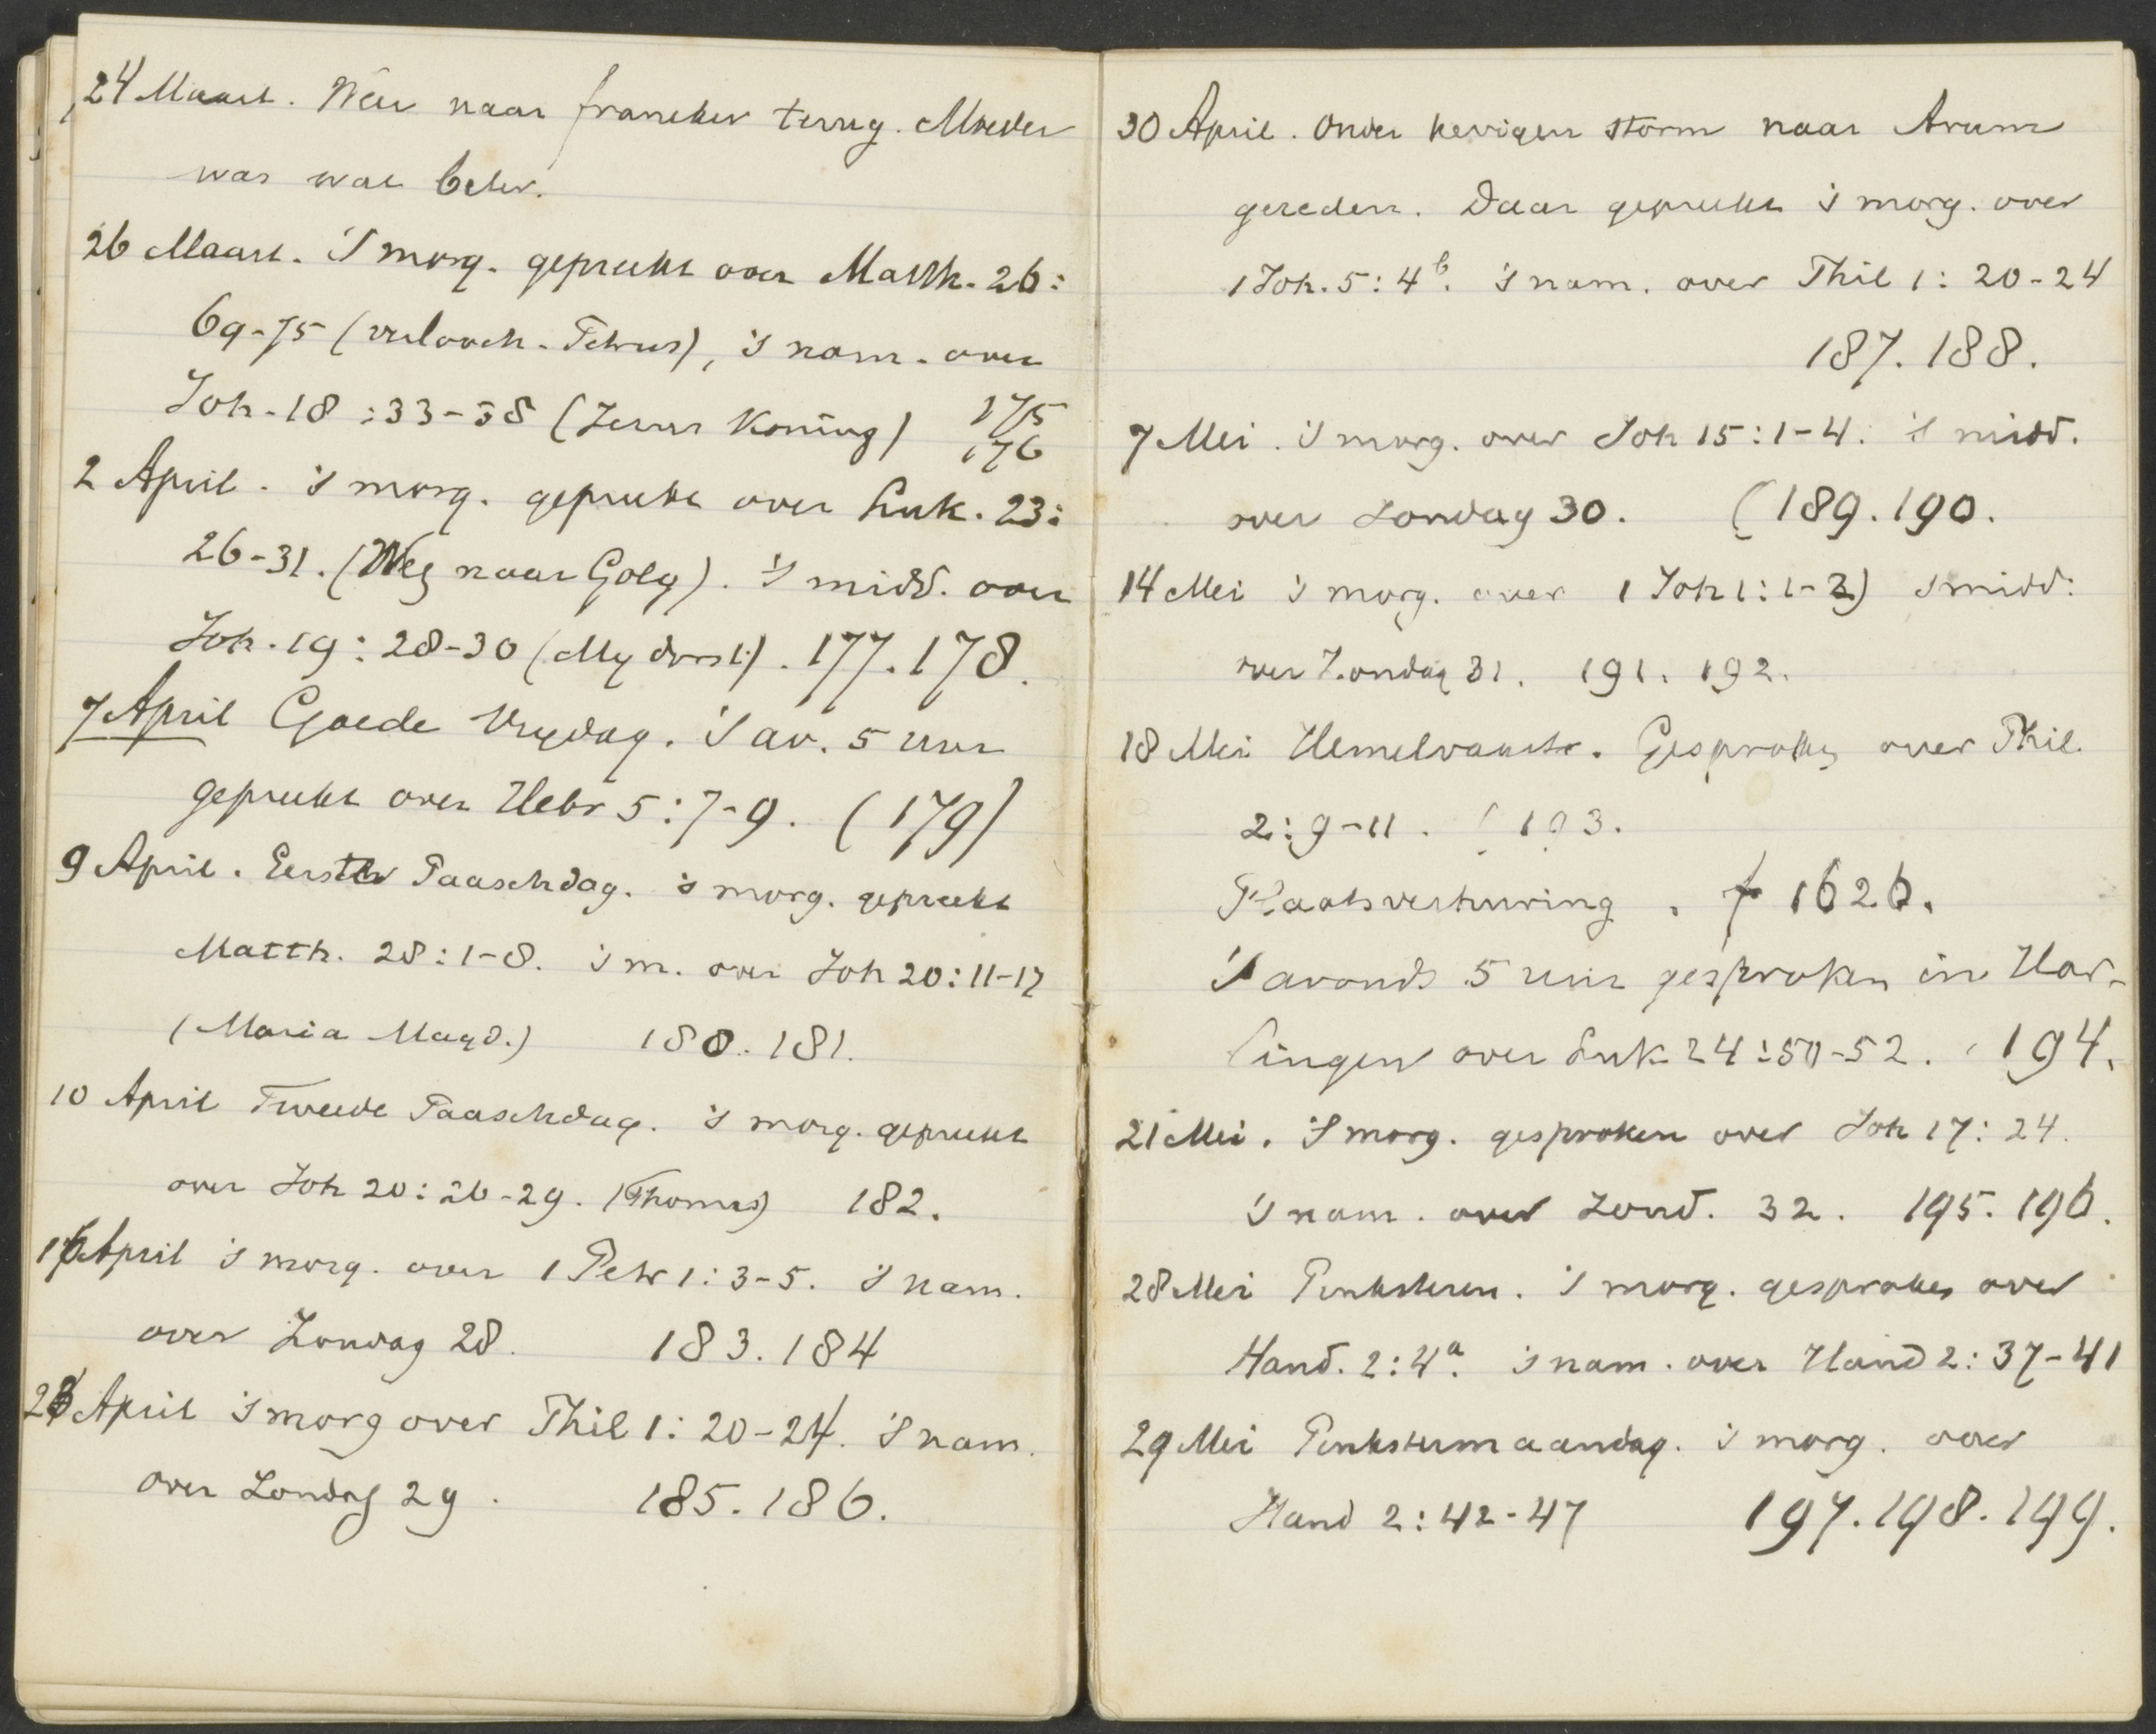 24 Maart. Weer naar Franeker terug. Moeder
was wat beter.
26 Maart. 's morg. gepreekt over Matth. 26:
69-75 (verlooch. Petrus), 's nam. over
Joh. 18:33-38 (Jezus Koning) 175
176
2 April. 's morg. gepreekt over Luk. 23:
26-31. (Weg naar Golg). 's midd. over
Joh. 19: 28-30 (My dorst). 177. 178.
7 April Goede Vrydag. 's av. 5 uur
gepreekt over Hebr 5: 7-9. (179)
9 April. Eerste Paaschdag. 's morg. gepreekt
Matth. 28: 1-8. 's m. over Joh 20: 11-17
(Maria Magd.) 180. 181.
10 April Tweede Paaschdag. 's morg. gepreekt
over Joh 20: 26-29. (Thomas) 182.
16 April 's morg. over 1 Petr 1: 3-5. 's nam.
over Zondag 28. 183. 184
23 April 's morg over Phil 1: 20-24. 's nam.
over Zondag 29. 185. 186.
30 April. Onder hevigen storm naar Arum
gereden. Daar gepreekt 's morg. over
1 Joh. 5: 4b. 's nam. over Phil 1: 20-24
187. 188.
7 Mei. 's morg. over Joh 15: 1-4. 's midd.
over Zondag 30. (189. 190.
14 Mei 's morg. over 1 Joh 1: 1-3) 's midd:
over Zondag 31. 191. 192.
18 Mei Hemelvaart. Gesproken over Phil.
2: 9-11. ( 193.
Plaatsverhuring. f 1626.
's avonds 5 uur gesproken in Har-
lingen over Luk. 24:50-52. 194.
21 Mei. 's morg. gesproken over Joh 17: 24.
's nam. over Zond. 32. 195. 196.
28 Mei Pinksteren. 's morg. gesproken over
Hand. 2: 4a. 's nam. over Hand 2: 37-41
29 Mei Pinkstermaandag. 's morg. over
Hand 2: 42-47 197. 198. 199.